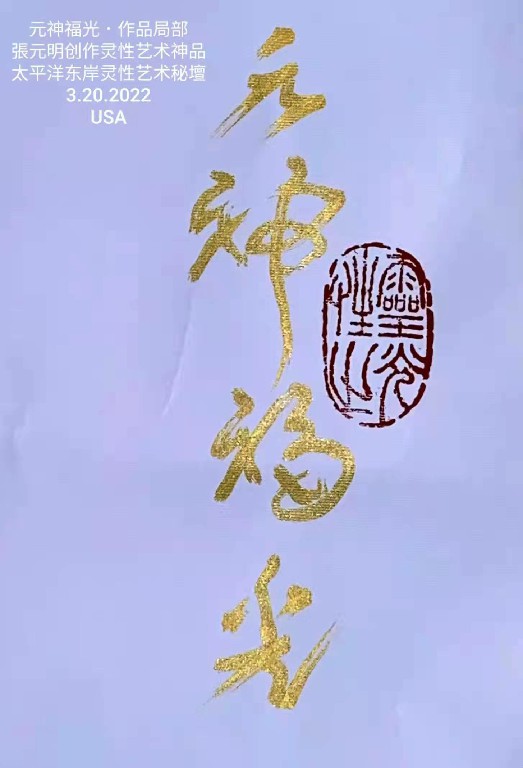 元神福光·作品局部
張元明创作灵性艺术神品
太平洋东岸灵性艺术秘壇
3.20.2022
USA
元神福光